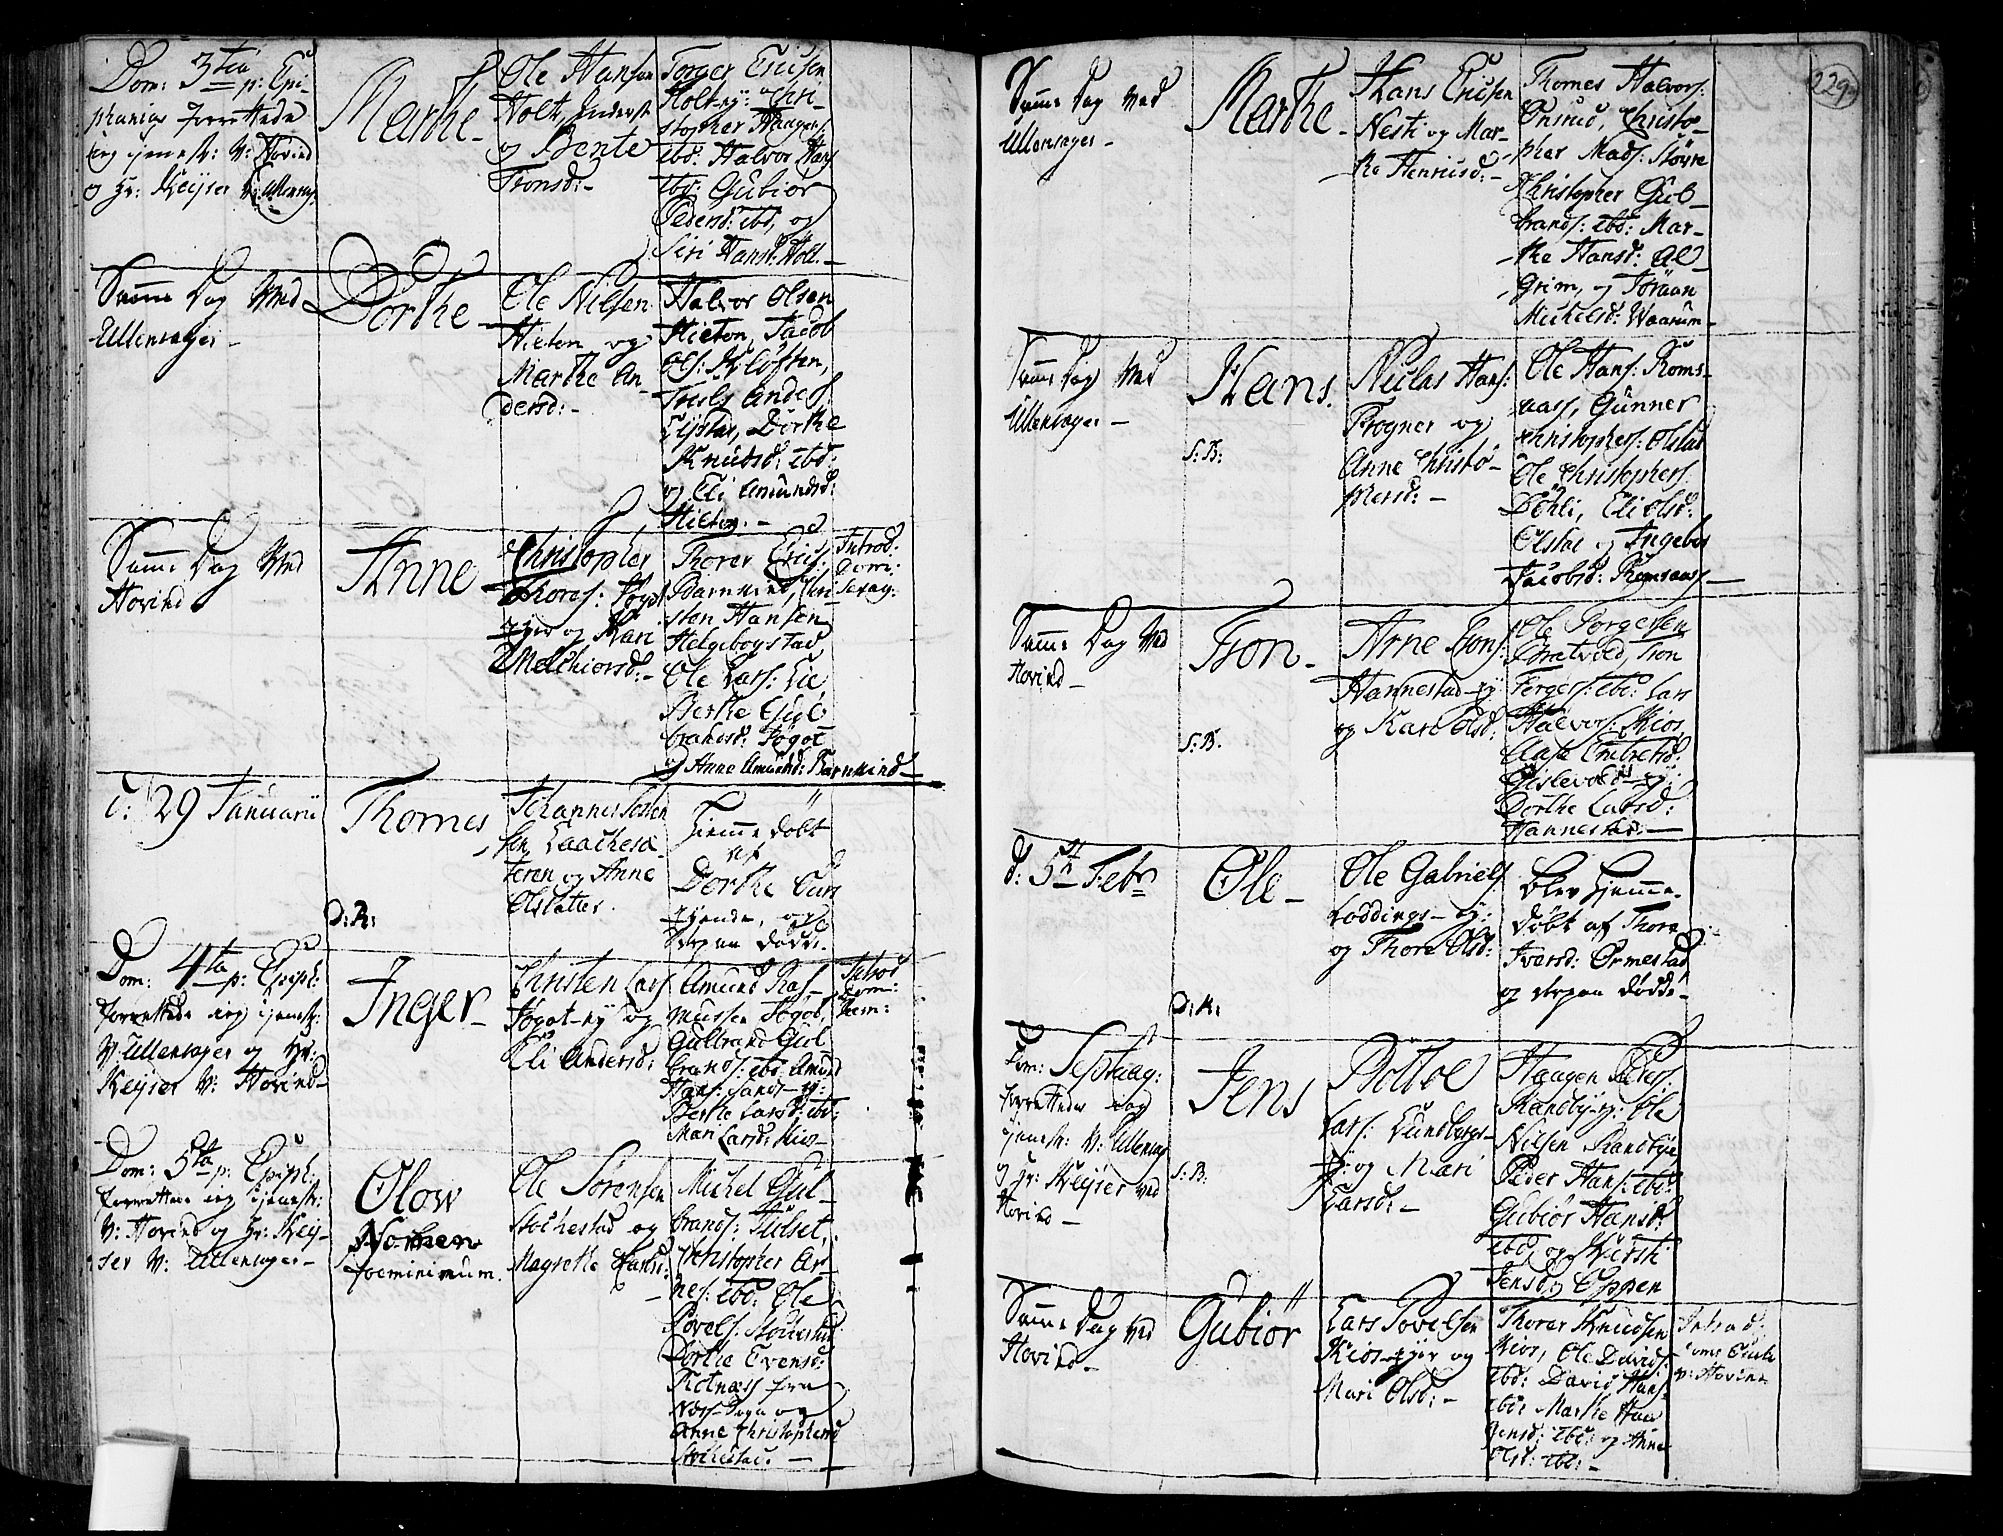 Dom: 3tia p: Epi-
phanias forrettede
ieg tienest: V: Hovind
og Hr: Keyser V: Ullens:
Marthe
Ole Hansen
Holt, Inderst
og Bente
Tronsd:
Torger Ericsen
Holt-ey: Chri-
stopher Haagens:
ibd: Halvor Hans:
ibd: Gubiør
Pedersd: ibd, og
Siri Hansd: Holt.
Samme Dag Ved
Ullensager
Dorthe
Ole Nilsen
Hieton og
Marthe An-
dersd:
Halvor Olsen
Hieton, Jacob
Ols: Kløften,
Troels Anders:
Dorthe
Knudsd: ibd:
og Eli Amundsd:
Hieton.
Samme Dag Ved
Hovind
Anne
Christopher
Thores:
og Kari
Melchiorsd:
Thorer Erics:
Barnkind, Chri-
sten Hansen
Helgebogstad
Ole Lars: Lie
Berthe Gul-
brandsd: Fogot
og Anne Amundsd: Barnkind
Introd:
Dom:
Sexag:
d: 29 Januarii
Thomes
D: A:
Johannes
sen
teren og Anne
Olsdatter
hiemme døbt
af
Dorthe Lars
og
derpaa døde.
Dom: 4ta p: Epiph:
forrettede ieg tienest:
V: Ullensager og Hr:
Keyser V: Hovind
Inger
Christen Lars:
Fogot-ey og
Eli Andersd:
Amund Ras-
mussen Fogot,
Gulbrand Gul-
brands: ibd, Amund
Hans: Sand-ey:
Berthe Larsd: ibd:
Mari Larsd: Kios
Introd
Dom:
Dom: 5ta p: Epiph:
forrettede ieg tienest:
V: Hovind og Hr: Key-
ser V: Ullensager
Olow
Nomen
foeminimum.
Ole Sørensen
Stochestad og
Magrethe Larsd:
Michel Gul-
brands: Julset,
Christopher Ar-
nes: ibd: Ole
Povels: Stochestad
Dorthe Evensd:
Rotnæss fra
Næss-Sogn og
Anne Christophersd
Stochestad.
229
Samme Dag Ved
Ullensager
Marthe
Hans Ericsen
Nesti og Mar-
the Henricsd:
Thomes Halvors:
Onsrud, Christo-
pher Mads: Støyre
Christopher Gul-
brands: ibd: Mar-
the Hansd: Al-
grim, og Jøraan
Michelsd: Waarum
Samme Dag Ved
Ullensager
Hans.
S: B:
Niclas Hans:
Frogner og
Anne Christo-
phersd:
Ole Hans: Roms-
aass, Gunner
Christophers: Olstad
Ole Christophers:
Døhli, Eli Olsd:
Olstad og Ingebor
Jacobsd: Romsaass
Samme Dag Ved
Hovind
Tron
S: B.
Arne Trons:
Hannestad-ey
og Kari Olsd:
Ole Torgersen
Bratvold, Tron
Torgers: ibd: Lars
Halvors: Kios,
Aase Embretsd:
Gislevold-ey:
Dorthe Larsd:
Hannestad:
d: 5te Febr
Ole
D: A:
Ole Gabriels:
Loddings-ey:
og Thore Olsd:
blev hiemme-
døbt af Thore
Iversd: Ormestad
og derpaa døde
Dom: Septuag:
forrettede ieg
tienest: V: Ullensag
og Hr: Keyser ved
Hovind
Jens
S: B.
Botolf
Lars: Lundbergs-
ey: og Mari
Larsd:
Haagen Peders:
Randby-ey: Ole
Nilsen Randbye
Peder Hans: ibd:
Gubiør Hansd:
ibd, og Kirsti
Jensd: Oppen
Samme Dag Ved
Hovind
Gubiør
Lars Povelsen
Kios-eyer og
Mari Olsd:
Thorer Knudsen
Kios, Ole Davids:
ibd: David Hans:
ibd: Marthe Haa-
gensd: ibd: og Anne
Olsd: ibd:
Introd:
V: Hovind